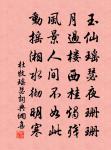 玉仙瑤瑟夜珊珊
月過樓西桂燭殘
風景人間不如此
動搖湘水徹明寒
杜牧瑤瑟詩詞典網集